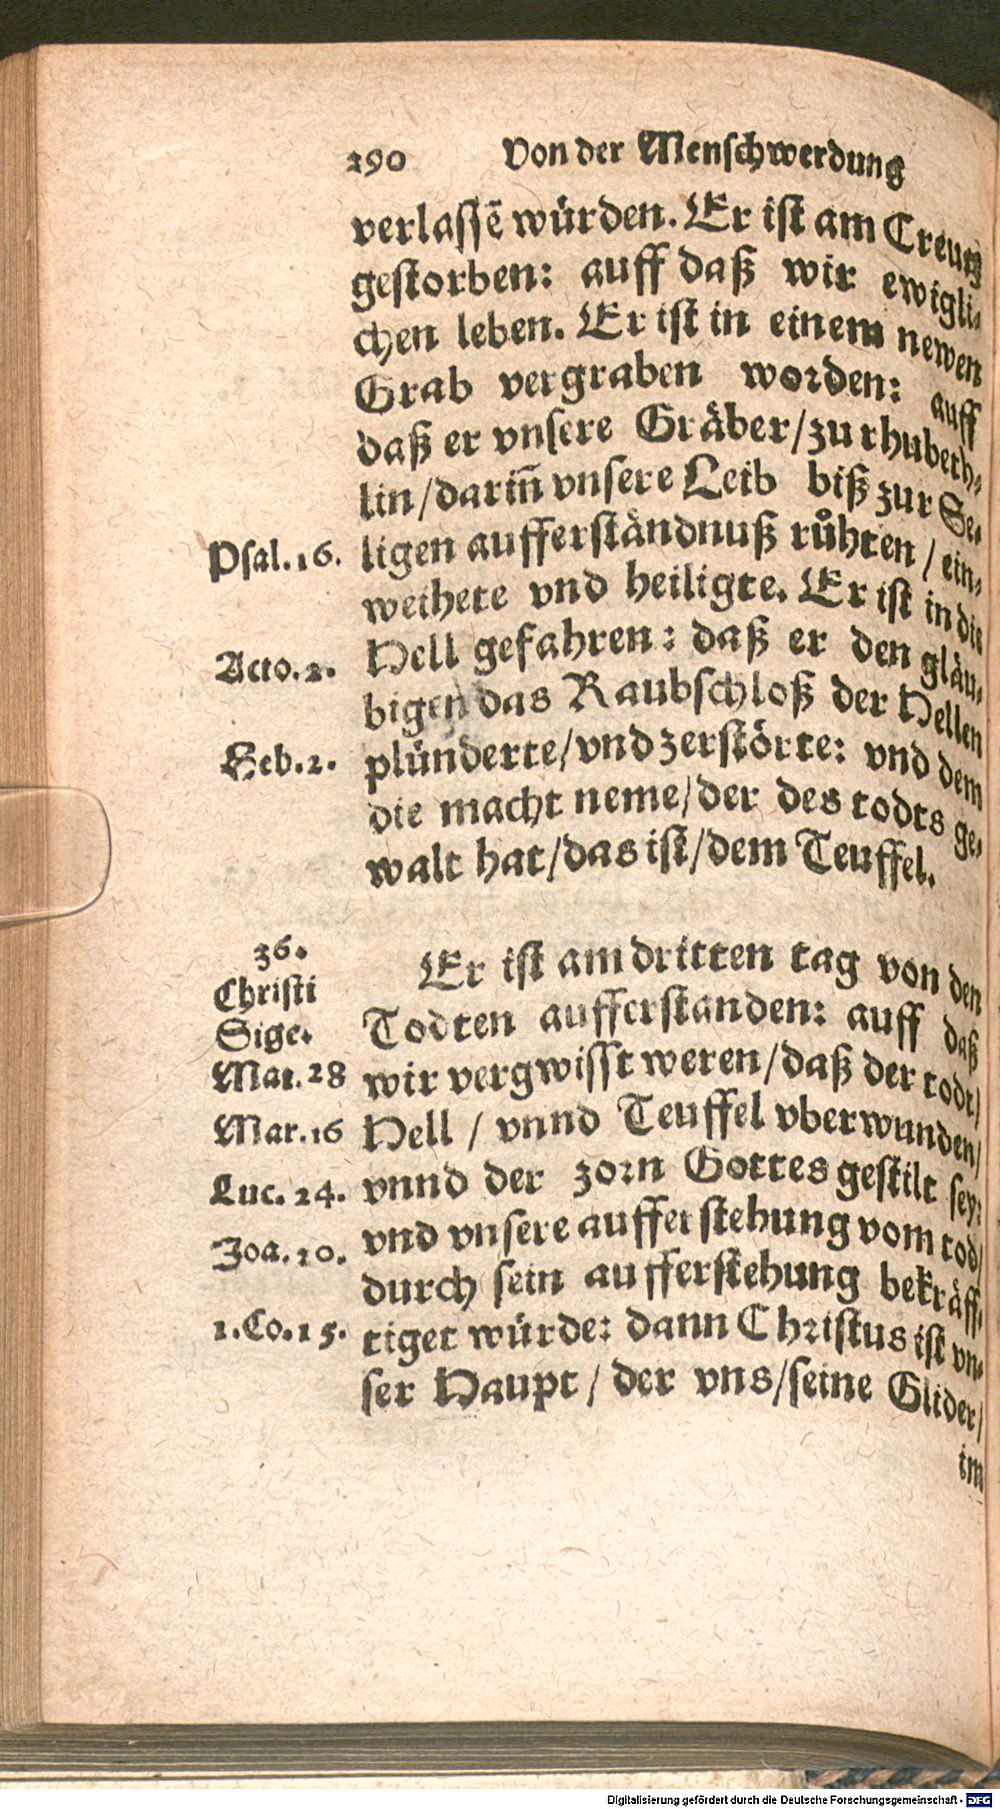 290 Von der Menschwerdung
verlassē würden. Er ist am Creutz
gestorben: auff daß wir ewigli-
chen leben. Er ist in einem newen
Grab vergraben worden: auff
daß er vnsere Gräber/zu rhubeth-
lin/dariñ vnsere Leib biß zur Se-
Psal.16. ligen aufferständnuß růhten/ein-
weihete vnd heiligte. Er ist in die
Acto.2. Hell gefahren: daß er den gläu-
bigen das Raubschloß der Hellen
Heb.2. plünderte/vnd zerstörte: vnd dem
die macht neme/der des todts ge-
walt hat/das ist/dem Teuffel.
36. Er ist am dritten tag von den
Christi
Sige. Todten aufferstanden: auff daß
Mat.28 wir vergwisst weren/daß der todt/
Mar.16 Hell / vnnd Teuffel vberwunden/
Luc. 24. vnnd der zorn Gottes gestilt sey:
Joa.20. vnd vnsere aufferstehung vom tod/
durch sein aufferstehung bekräff-
1.Co.15. tiget würde: dann Christus ist vn-
ser Haupt / der vns/seine Glider/
im
Digitalisierung gefördert durch die Deutsche Forschungsgemeinschaft - DFG